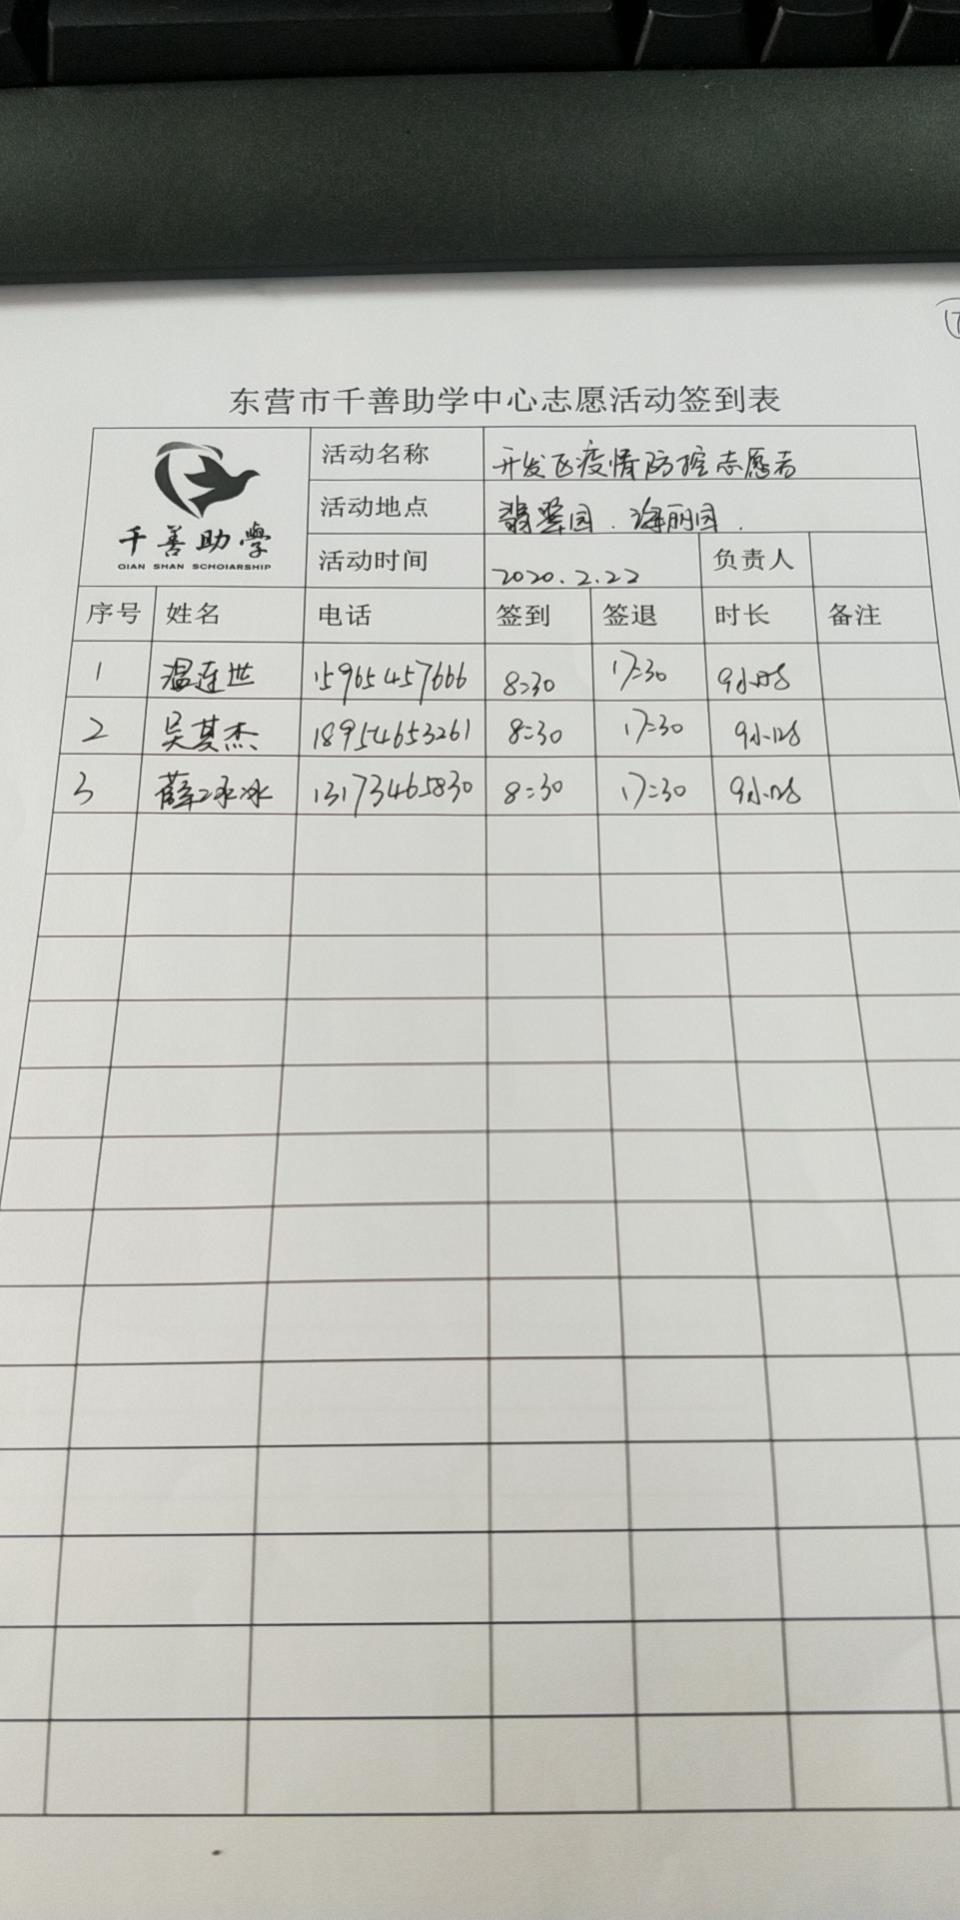 东营市千善助学中心志愿活动签到表
千善助學
QIAN SHAN SCHOIARSHIP
活动名称 开发区疫情防控志愿者
活动地点 翡翠园.海丽园.
活动时间 2020.2.22 负责人
序号 姓名 电话 签到 签退 时长 备注
1 温连世 15965457666 8:30 17:30 9小时
2 吴其杰 18954653261 8:30 17:30 9小时
3 薛冰冰 13173465830 8:30 17:30 9小时